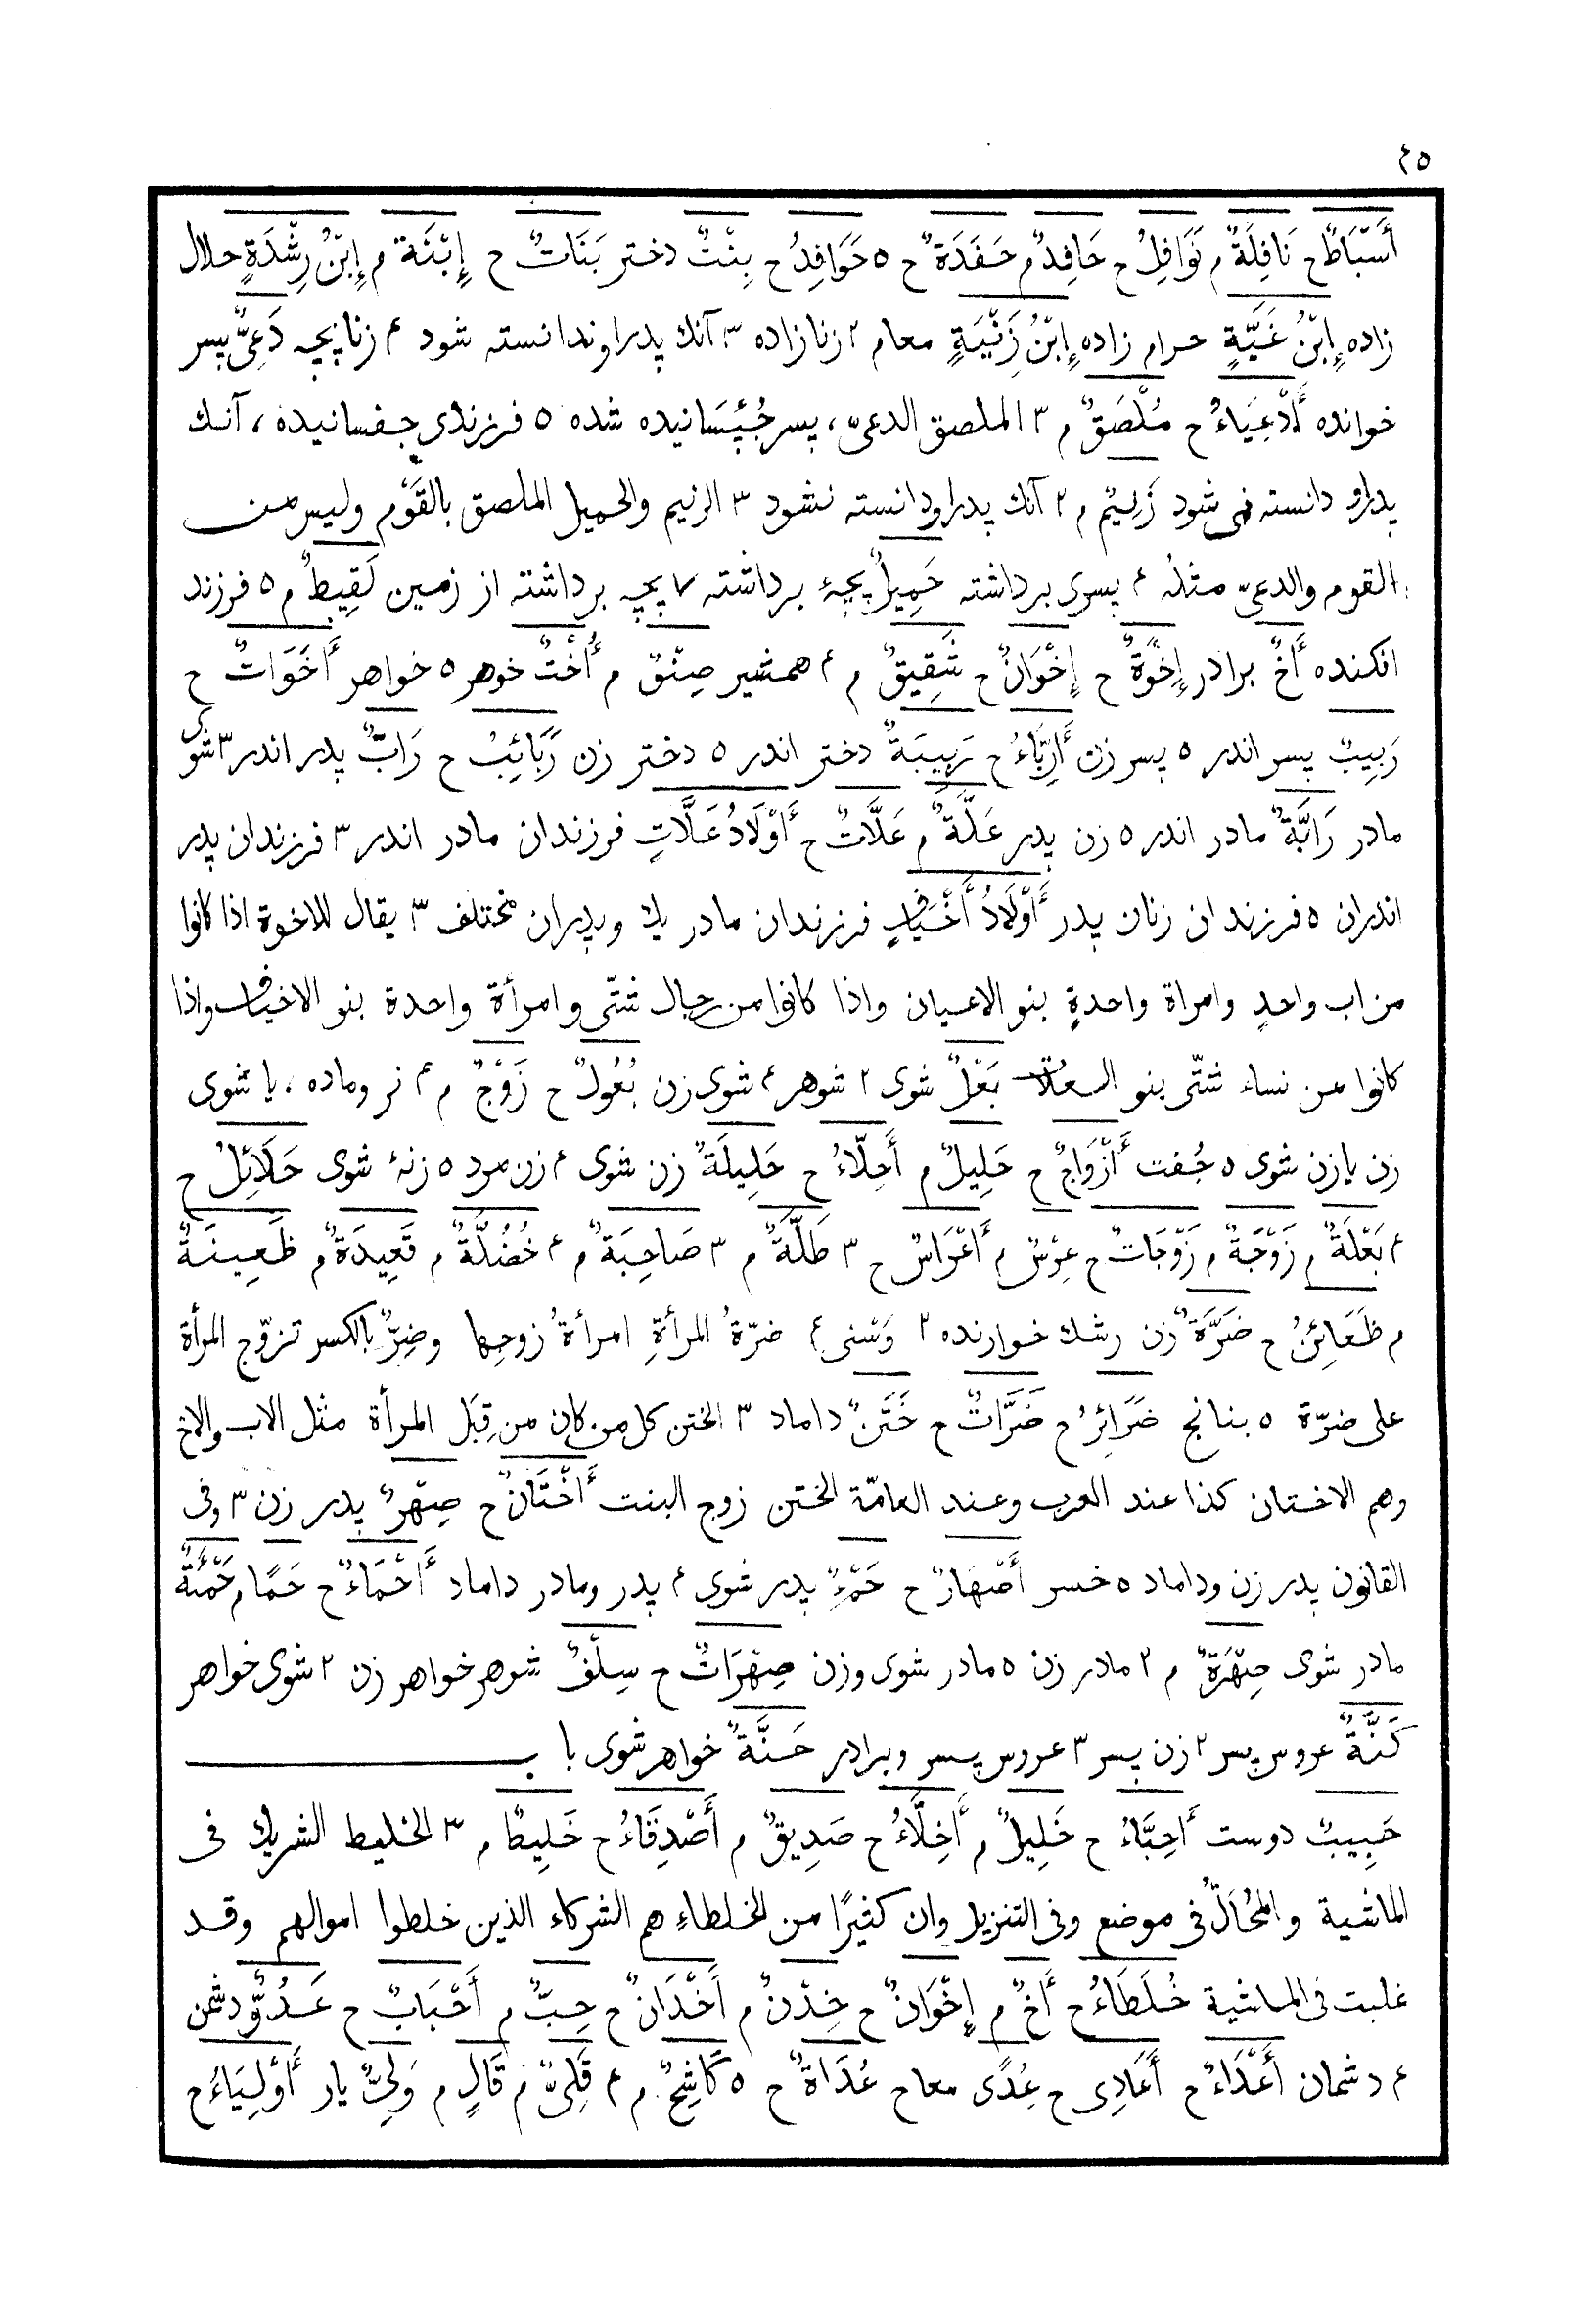 ۴۵
أَسْبَاطٌ ح نَافِلَةٌ م نَوَافِلُ ح حَافِدٌ م حَفَدَةٌ ح ۵ حَوَافِدُ ح بِنْتٌ دختر بَنَاتٌ ح إِبْنَة م إِبْنُ رِشْدَةٍ حلال
زاده إِبْنُ غَيَّةٍ حرام زاده إِبْنُ زَنْيَةٍ معام ۲ زنا زاده ۳ آنك پدر او ندانسته شود ۴ زنا پچه دَعِىٌّ پسر
خوانده أَدْعِيَاءُ ح مُلْصَقٌ م ۳ الملصق الدعىّ، پسر جُپْسَانيده شده ۵ فرزندى جفسانيده، آنك
پدر او دانسته نمى شود زَنِيْمٌ م ۲ آنك پدر او دانسته نشود ۳ الزنيم والحميل الملصق بالقَوْم وليس من
القوم والدعىّ مثلهُ ۴ پسرى برداشته حَمِيلٌ پچهٔ برداشته ۷ پچه برداشته از زمين لَقِيطٌ م ۵ فرزند
افكنده أَخٌ برادر إِخْوَةٌ ح إِخْوَانٌ ح شَقِيقٌ م ۴ همشير صِنْوٌ م أُخْتٌ خوهر ۵ خواهر أَخَوَاتٌ ح
رَبِيبٌ پسر اندر ۵ پسر زن أَرِبَّاءُ ح رَبِيبَةٌ دختر اندر ۵ دختر زن رَبَائِبُ ح رَابٌّ پدر اندر ۳ شوى
مادر رَابَّةٌ مادر اندر ۵ زن پدر عَلَّةٌ م عَلَّاتٌ ح أَوْلَادُ عَلَّاتٍ فرزندان مادر اندر ۳ فرزندان پدر
اندران ۵ فرزندان زنان پدر أَوْلَادُ أَخْيَافٍ فرزندان مادر يك وپدران مختلف ۳ يقال للاخوة اذا كانوا
من اب واحدٍ وامراة واحدةٍ بنو الاعيان واذا كانوا من رجال شتّى وامرأة واحدة بنو الاخياف واذا
كانوا من نساء شتّى بنو العلات بَعْلٌ شوى ۲ شوهر ۴ شوى زن بُعُولٌ ح زَوْجٌ م ۴ نر وماده، يا شوى
زن يا زن شوى ۵ جُفت أَزْوَاجٌ ح حَلِيلٌ م أَحِلَّاءُ ح حَلِيلَةٌ زن شوى ۴ زن مرد ۵ زنهٔ شوى حَلَائِلُ ح
۴ بَعْلَةٌ م زَوْجَةٌ م زَوْجَاتٌ ح عِرْسٌ م أَعْرَاسٌ ح ۳ طَلَّةٌ م ۳ صَاحِبَةٌ م ۴ خُضُلَّةٌ م قَعِيدَةٌ م ظَعِينَةٌ
م ظَعَائِنُ ح ضَرَّةٌ زن رشك خوارنده ۲ وَسْنى ۴ ضرّةُ المرأةِ امرأةُ زوجِها وضِرٌّ بالكسر تزوّج المرأة
على ضرّة ۵ بنانج ضَرَائِرُ ح ضَرَّاتٌ ح خَتَنٌ داماد ۳ الختن كل من كان من قِبَل المرأة مثل الاب والاخ
وهم الاختان كذا عند العرب وعند العامّة الختن زوج البنت أَخْتَانٌ ح صِهْرٌ پدر زن ۳ وفى
القانون پدر زن وداماد ۵ خسر أَصْهَارٌ ح حَمْءٌ پدر شوى ۴ پدر ومادر داماد أَحْمَاءٌ ح حَمًا م حَمْئَةٌ
مادر شوى صِهْرَةٌ م ۲ مادر زن ۵ مادر شوى وزن صِهْرَاتٌ ح سِلْفٌ شوهر خواهر زن ۲ شوى خواهر
كَنَّةٌ عروس پسر ۲ زن پسر ۳ عروس پسر وبرادر حَنَّةٌ خواهر شوى با ب
حَبِيبٌ دوست أَحِبَّاءُ ح خَلِيلٌ م أَخِلَّاءُ ح صَدِيقٌ م أَصْدِقَاءُ ح خَلِيطٌ م ۳ الخليط الشريك فى
الماشية والمُحَالُّ فى موضع وفى التنزيل وان كثيرًا من الخلطاءِ هم الشركاء الذين خلطوا اموالهم وقد
غلبت فى الماشية خُلَطَاءُ ح أَخٌ م إِخْوَانٌ ح خِدْنٌ م أَخْدَانٌ ح حِبٌّ م أَحْبَابٌ ح عَدُوٌّ دشمن
۴ دشمان أَعْدَاءٌ ح أَعَادِى ح عِدًى معا ح عُدَاةٌ ح ۵ كَاشِحٌ م ۴ قَلِىٌّ م قَالٍ م وَلِىٌّ يار أَوْلِيَاءُ ح